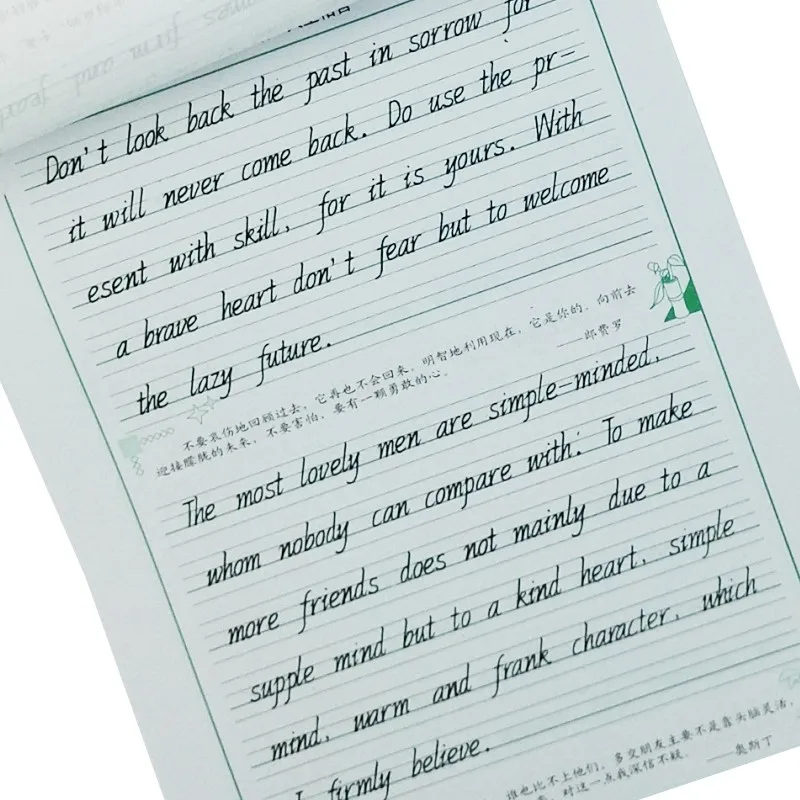 Don't look back the past in sorrow for
it will never come back. Do use the pr-
esent with skill, for it is yours. With
a brave heart don't fear but to welcome
the lazy future.
不要哀伤地回顾过去，它再也不会回来，明智地利用现在，它是你的，向前去
迎接朦胧的未来，不要害怕，要有一颗勇敢的心。
——郎费罗
The most lovely men are simple-minded,
whom nobody can compare with: To make
more friends does not mainly due to a
supple mind but to a kind heart, simple
mind, warm and frank character, which
I firmly believe.
谁也比不上他们，多交朋友主要不是靠头脑灵活，
对这一点我深信不疑。
——奥斯丁